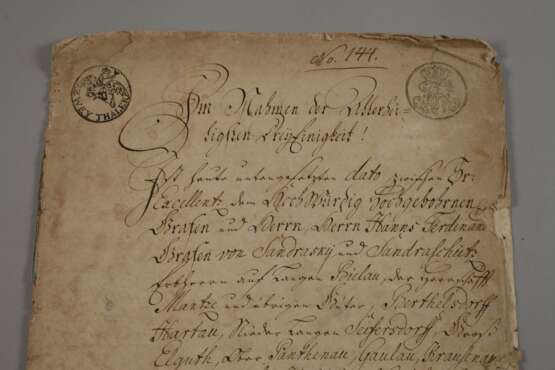 No. 144.
ZWEY THALER
Im Nahmen der Allerhei-
ligsten Dreyeinigkeit!
Ist heute untengesetzten dato zwischen Sr.
Excellentz dem HochWürdig Hochgebohrnen
Grafen und Herrn, Herrn Hanns Ferdinand
Grafen von Sandrasky und Sandraschütz
Erbherrn auf Langen Bielau, der Herrschafft
Mantze und übrigen Güter, Berthelsdorff
Hartau, Nieder Langen Seifersdorff, Groß
Elguth, Ober Panthenau, Gaulau,